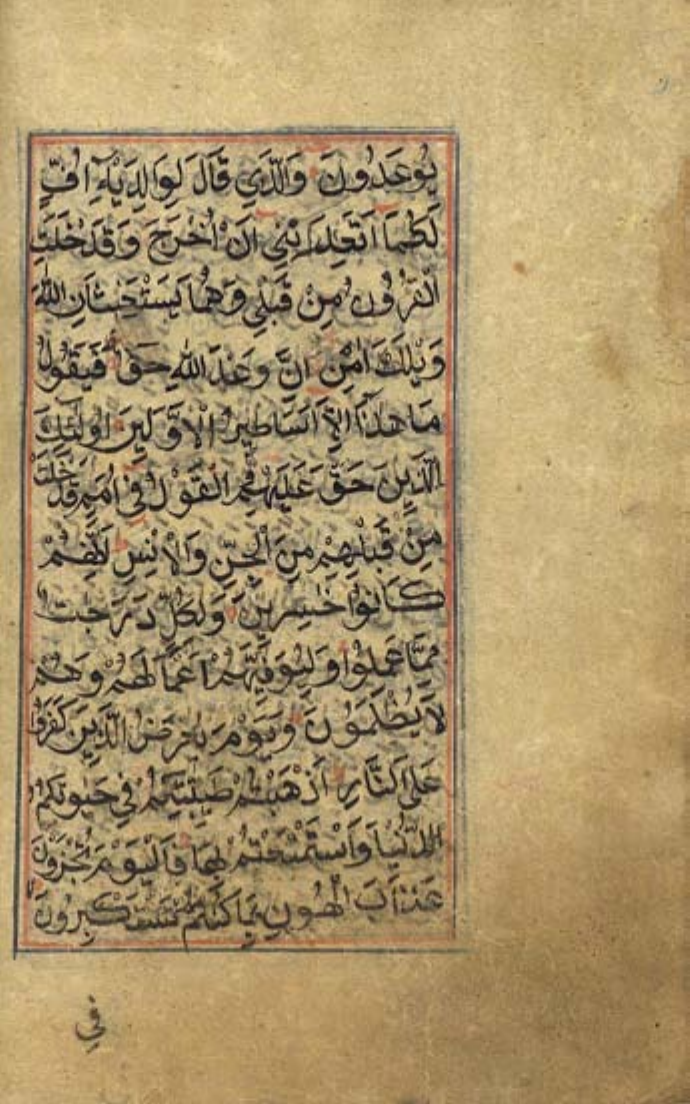 يُوعَدُونَ وَالَّذِي قَالَ لِوَالِدَيْهِ اُفٍّ
لَكُمَا اَتَعِدَانِنِي اَنْ اُخْرَجَ وَقَدْ خَلَتِ
الْقُرُونُ مِنْ قَبْلِي وَهُمَا يَسْتَغِيثَانِ اللهَ
وَيْلَكَ اٰمِنْ اِنَّ وَعْدَ اللهِ حَقٌّ فَيَقُولُ
مَا هٰذَا اِلَّا اَسَاطِيرُ الْاَوَّلِينَ اُولٰئِكَ
الَّذِينَ حَقَّ عَلَيْهِمُ الْقَوْلُ فِي اُمَمٍ قَدْ خَلَتْ
مِنْ قَبْلِهِمْ مِنَ الْجِنِّ وَالْاِنْسِ اِنَّهُمْ
كَانُوا خٰسِرِينَ وَلِكُلٍّ دَرَجٰتٌ
مِمَّا عَمِلُوا وَلِيُوَفِّيَهُمْ اَعْمَالَهُمْ وَهُمْ
لَا يُظْلَمُونَ وَيَوْمَ يُعْرَضُ الَّذِينَ كَفَرُوا
عَلَى النَّارِ اَذْهَبْتُمْ طَيِّبٰتِكُمْ فِي حَيٰوتِكُمُ
الدُّنْيَا وَاسْتَمْتَعْتُمْ بِهَا فَالْيَوْمَ تُجْزَوْنَ
عَذَابَ الْهُونِ بِمَا كُنْتُمْ تَسْتَكْبِرُونَ
فِي